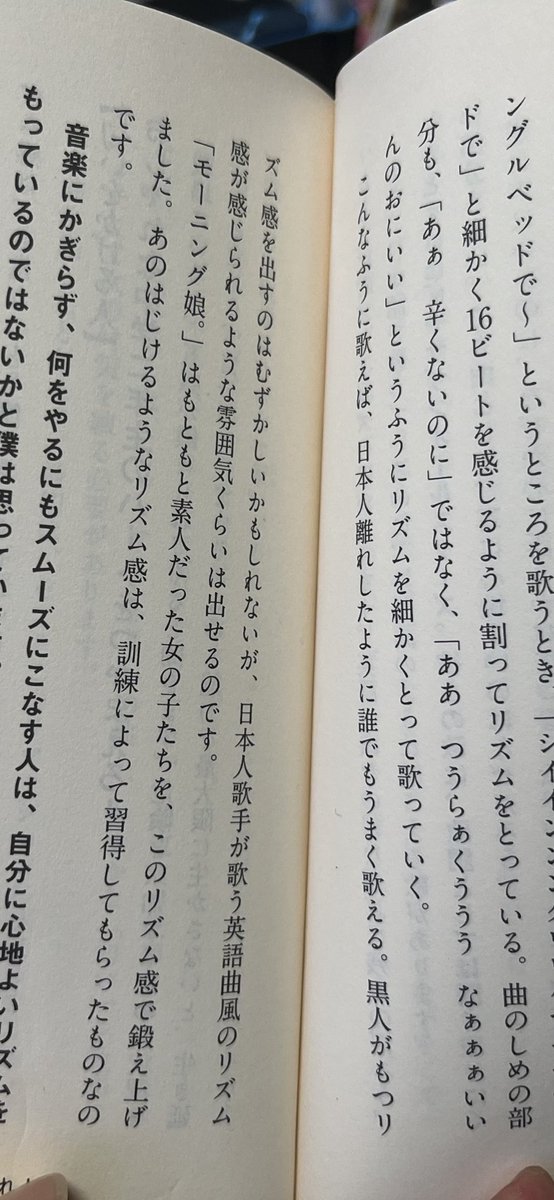 ングルベッドで～」というところを歌うとき
ドで」と細かく16ビートを感じるように割ってリズムをとっている。曲のしめの部
分も、「あぁ　辛くないのに」ではなく、「ああ　つうらぁくううう　なぁぁぁいい
んのおにいい」というふうにリズムを細かくとって歌っていく。
こんなふうに歌えば、日本人離れしたように誰でもうまく歌える。黒人がもつリ
ズム感を出すのはむずかしいかもしれないが、日本人歌手が歌う英語曲風のリズム
感が感じられるような雰囲気くらいは出せるのです。
「モーニング娘。」はもともと素人だった女の子たちを、このリズム感で鍛え上げ
ました。あのはじけるようなリズム感は、訓練によって習得してもらったものなの
です。
音楽にかぎらず、何をやるにもスムーズにこなす人は、自分に心地よいリズムを
もっているのではないかと僕は思ってい